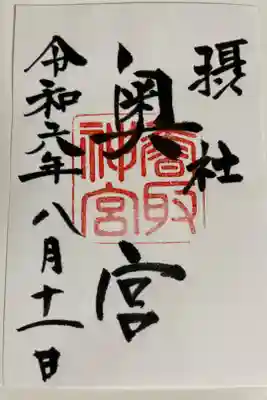 摂社
奥宮
香取神宮
令和六年八月十一日